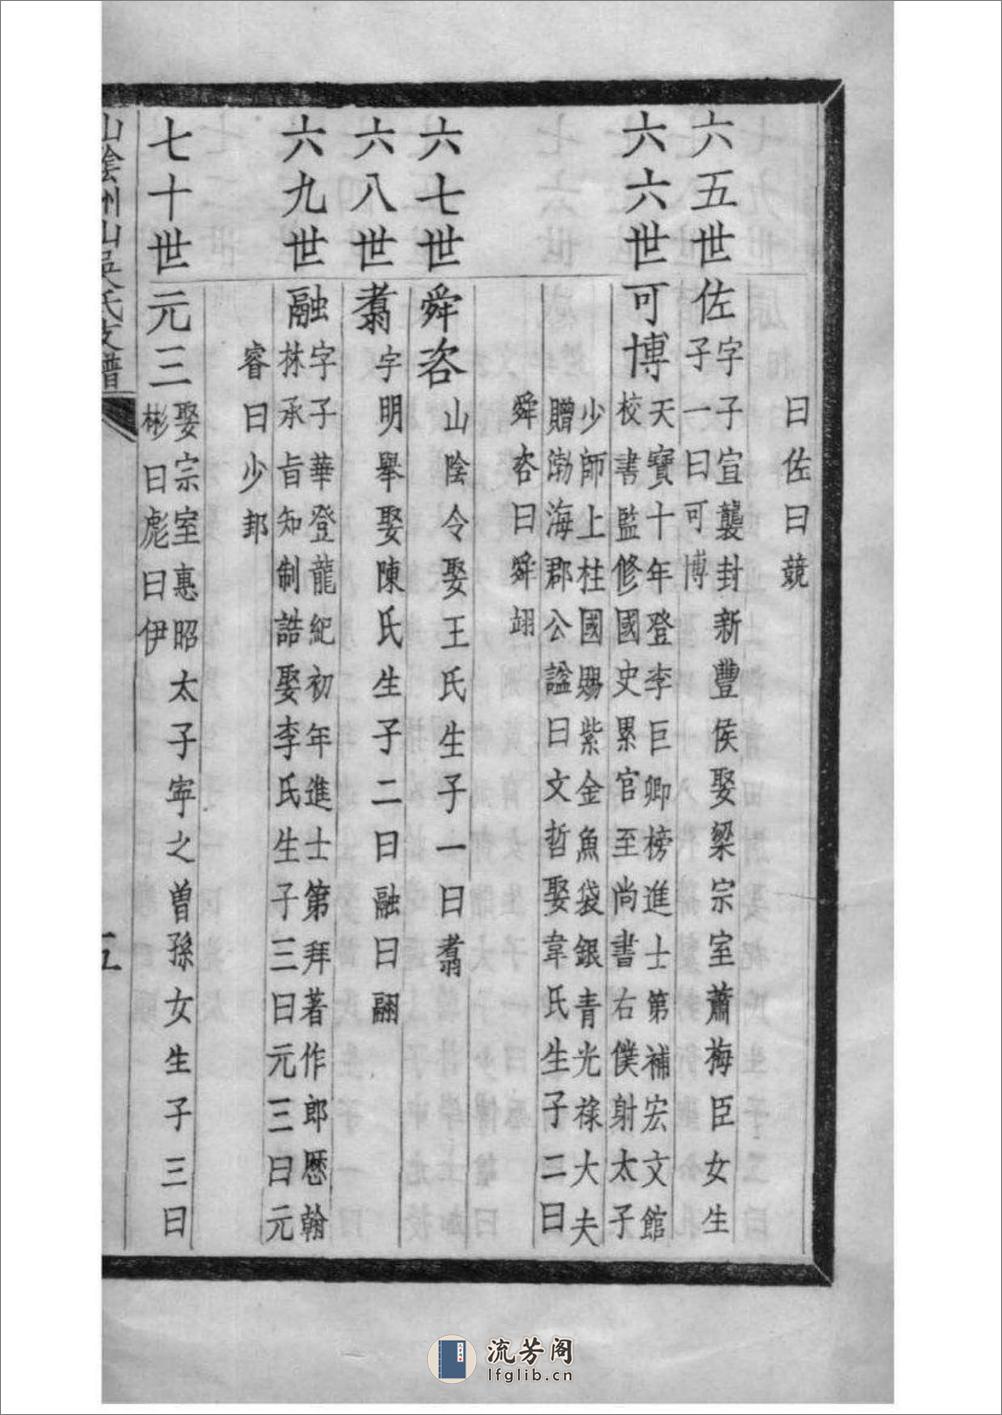 曰佐曰競
六五世佐字子宣襲封新豐侯娶梁宗室蕭梅臣女生
子一曰可博
六六世可博天寶十年登李巨卿榜進士第補宏文館
校書監修國史累官至尚書右僕射太子
少師上柱國賜紫金魚袋銀青光祿大夫
贈渤海郡公諡曰文哲娶韋氏生子二曰
舜咨曰舜翊
六七世舜咨山陰令娶王氏生子一曰翥
六八世翥字明舉娶陳氏生子二曰融曰翮
六九世融字子華登龍紀初年進士第拜著作郎歷翰
林承旨知制誥娶李氏生子三曰元三曰元
睿曰少邦
七十世元三娶宗室惠昭太子寧之曾孫女生子三曰
彬曰彪曰伊
山陰州山吳氏支譜
五
流芳阁
lfglib.cn